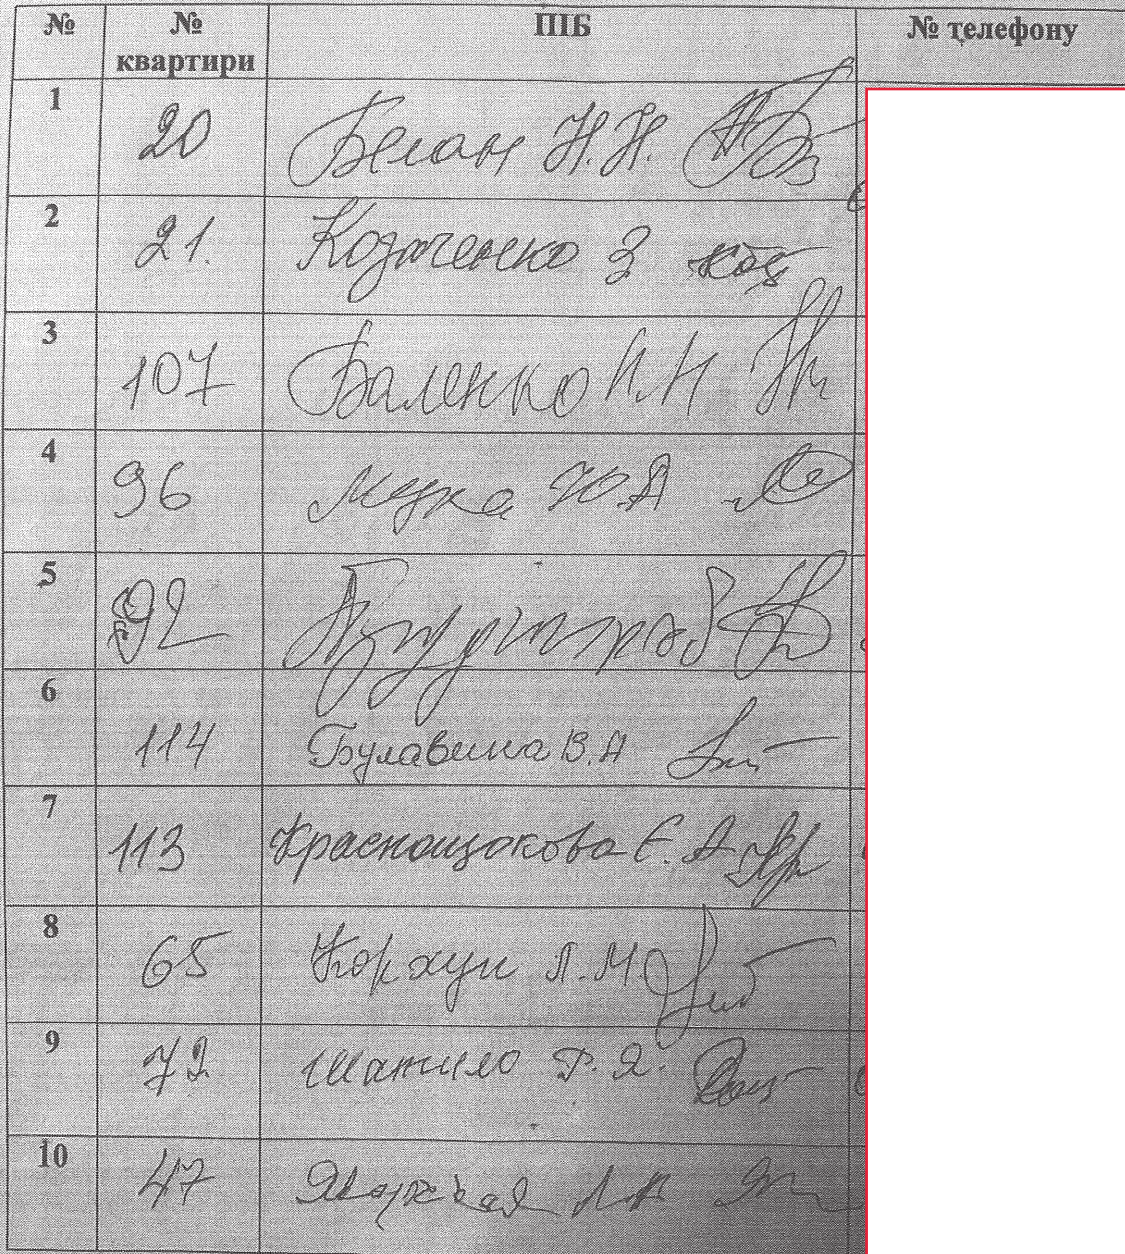 № № квартири ПІБ № телефону
1 20 Белан Н.Н.
2 21. Козаченко З
3 107 Баленко Н.Н
4 96 Мука Ю.А
5 92
6 114 Булавина В.А
7 113 Краснощокова Є. А
8 65 Коржун Л.М.
9 72 Шанило Р.Я.
10 47